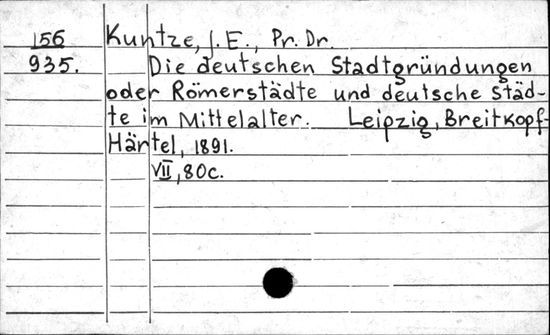 156
935.
Kuntze, J. E., Pr. Dr.
Die deutschen Stadtgründungen
oder Römerstädte und deutsche Städ-
te im Mittelalter. Leipzig, Breitkopf-
Härtel, 1891.
VII, 80c.